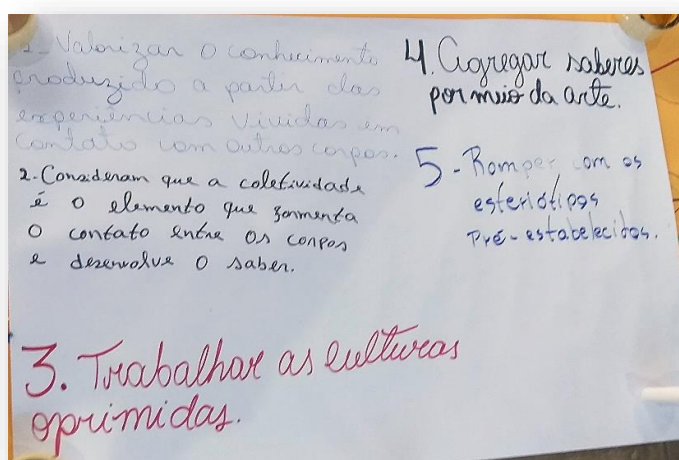 1- Valorizar o conhecimento
produzido a partir das
experiências vividas em
contato com outros corpos.
2. Consideram que a coletividade
é o elemento que fomenta
o contato entre os corpos
e desenvolve o saber.
3. Trabalhar as culturas
oprimidas.
4. Agregar saberes
por meio da arte.
5- Romper com os
esteriótipos
pré-estabelecidos.